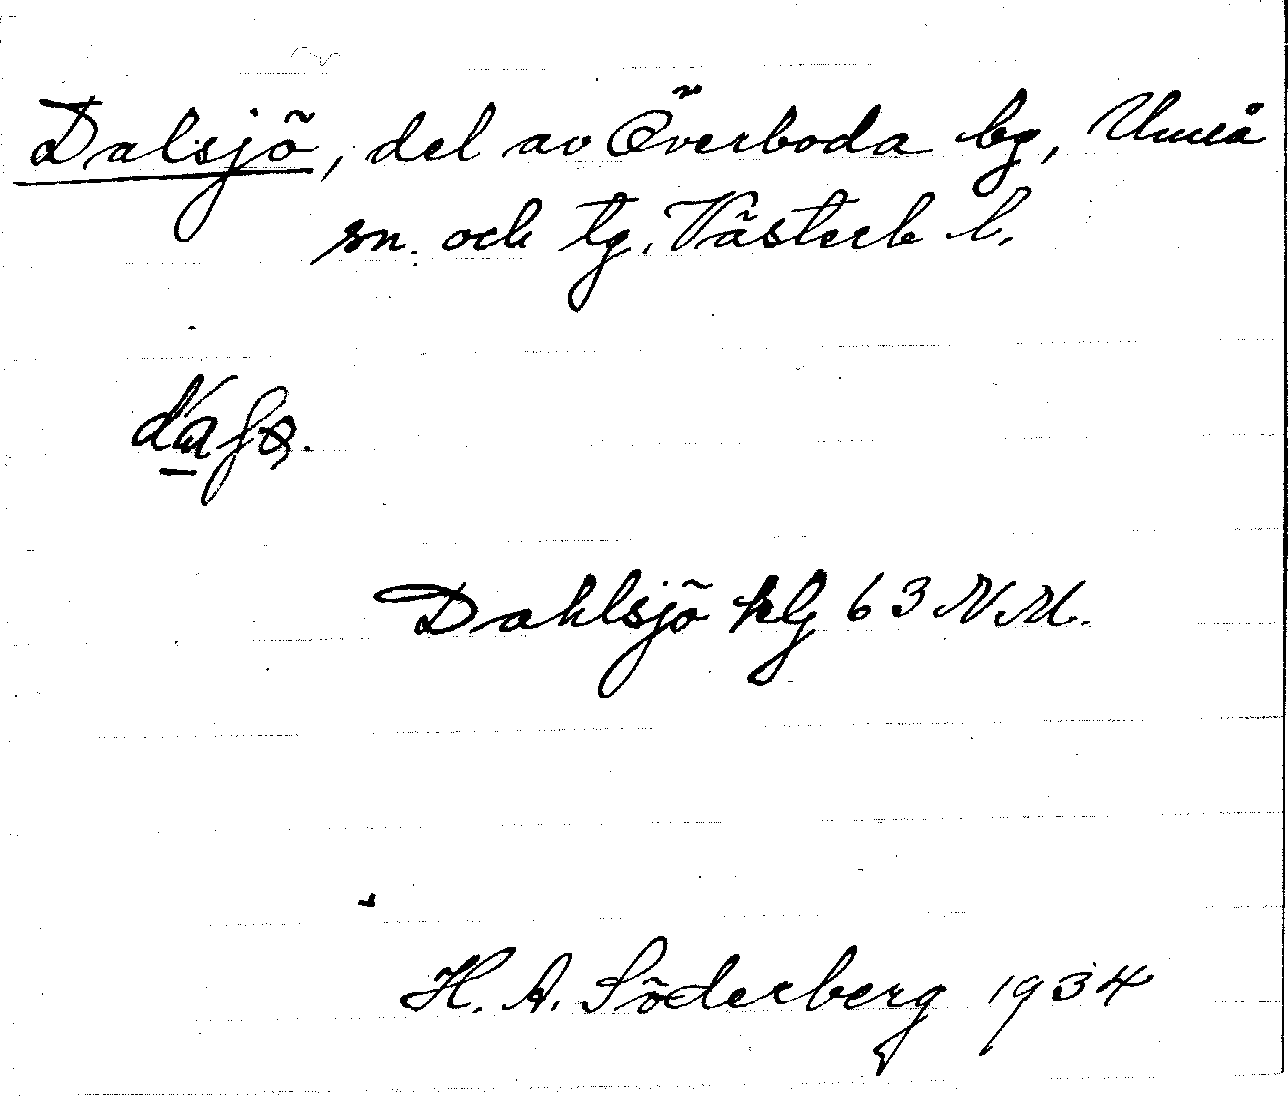 Dalsjö, del av Överboda by, Umeå
sn. och tg. Västerb l.
Dahlsjö klg 63 N M.
H. A. Söderberg 1934